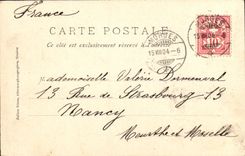 France
CARTE POSTALE
Ce côté est exclusivement réservé à l'adresse.
15 VIII 04 - 6
Mademoiselle Valérie
13 Rue de Strasbourg 13
Nancy
Meurthe et Moselle